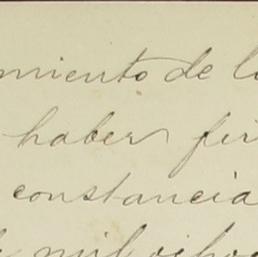 miento de l
haber fir
constancia
mil ocho